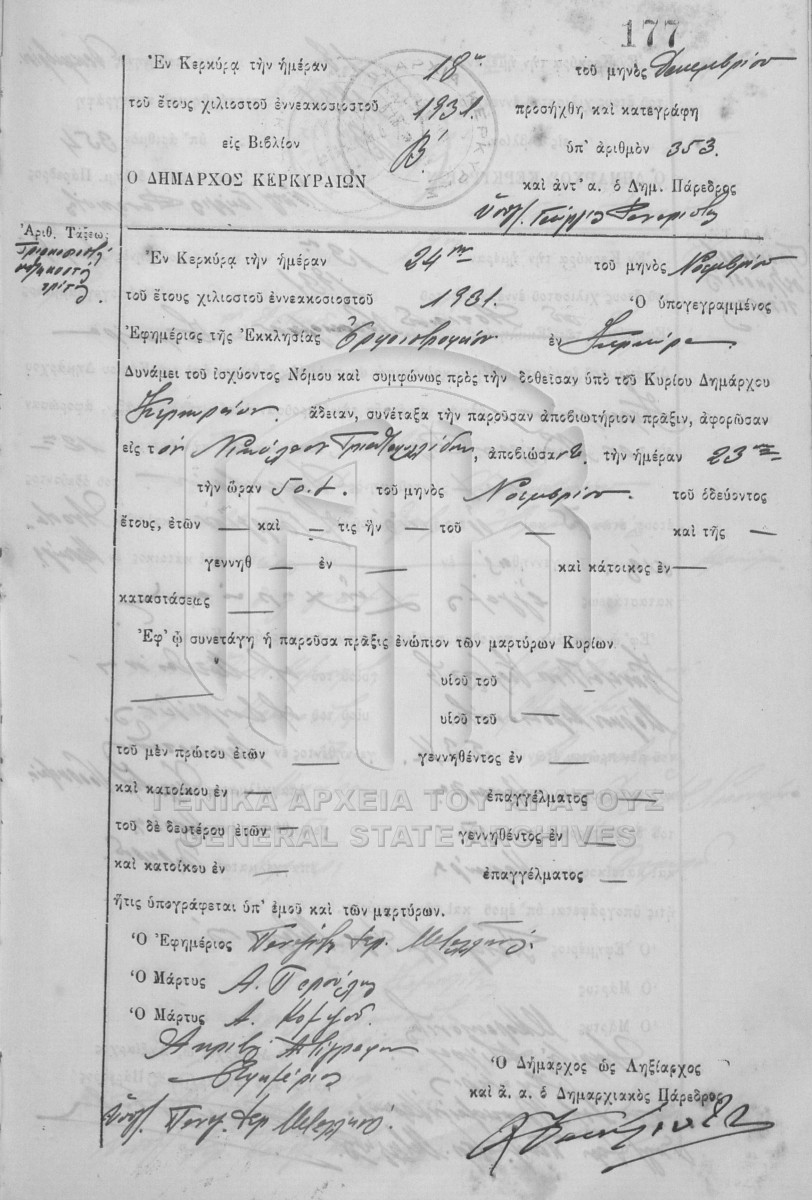 177
Ἐν Κερκύρᾳ τὴν ἡμέραν 18ην τοῦ μηνὸς Δεκεμβρίου
τοῦ ἔτους χιλιοστοῦ ἐννεακοσιοστοῦ 1931. προσήχθη καὶ κατεγράφη
εἰς Βιβλίον Β' ὑπ' ἀριθμὸν 353.
Ὁ ΔΗΜΑΡΧΟΣ ΚΕΡΚΥΡΑΙΩΝ καὶ ἀντ' α. ὁ Δημ. Πάρεδρος
ὑπογ.
Ἀριθ. Τάξεως
τρίτη
Ἐν Κερκύρᾳ τὴν ἡμέραν 24ην τοῦ μηνὸς Νοεμβρίου
τοῦ ἔτους χιλιοστοῦ ἐννεακοσιοστοῦ 1931. Ὁ ὑπογεγραμμένος
Ἐφημέριος τῆς Ἐκκλησίας ἐν Κερκύρᾳ
Δυνάμει τοῦ ἰσχύοντος Νόμου καὶ συμφώνως πρὸς τὴν δοθεῖσαν ὑπὸ τοῦ Κυρίου Δημάρχου
Κερκυραίων ἄδειαν, συνέταξα τὴν παροῦσαν ἀποβιωτήριον πρᾶξιν, ἀφορῶσαν
εἰς τὸν Νικόλαον Τριανταφυλλίδην, ἀποβιώσαντα τὴν ἡμέραν 23ην
τὴν ὥραν 5 μ.μ. τοῦ μηνὸς Νοεμβρίου. τοῦ ὁδεύοντος
ἔτους, ἐτῶν — καὶ — τις ἦν — τοῦ — καὶ τῆς —
γεννηθ — ἐν — καὶ κάτοικος ἐν —
καταστάσεως —
Ἐφ' ᾧ συνετάγη ἡ παροῦσα πρᾶξις ἐνώπιον τῶν μαρτύρων Κυρίων
υἱοῦ τοῦ —
— υἱοῦ τοῦ —
τοῦ μὲν πρώτου ἐτῶν — γεννηθέντος ἐν —
καὶ κατοίκου ἐν — ἐπαγγέλματος —
ΓΕΝΙΚΑ ΑΡΧΕΙΑ ΤΟΥ ΚΡΑΤΟΥΣ
τοῦ δὲ δευτέρου ἐτῶν — γεννηθέντος ἐν —
GENERAL STATE ARCHIVES
καὶ κατοίκου ἐν — ἐπαγγέλματος —
ἥτις ὑπογράφεται ὑπ' ἐμοῦ καὶ τῶν μαρτύρων.
Ὁ Ἐφημέριος
Ὁ Μάρτυς Α.
Ὁ Μάρτυς Α.
Ἀκριβὲς Ἀντίγραφον
Ἐφημέριος
Ὁ Δήμαρχος ὡς Ληξίαρχος
καὶ ἀ. α. ὁ Δημαρχιακὸς Πάρεδρος
ὑπογ.